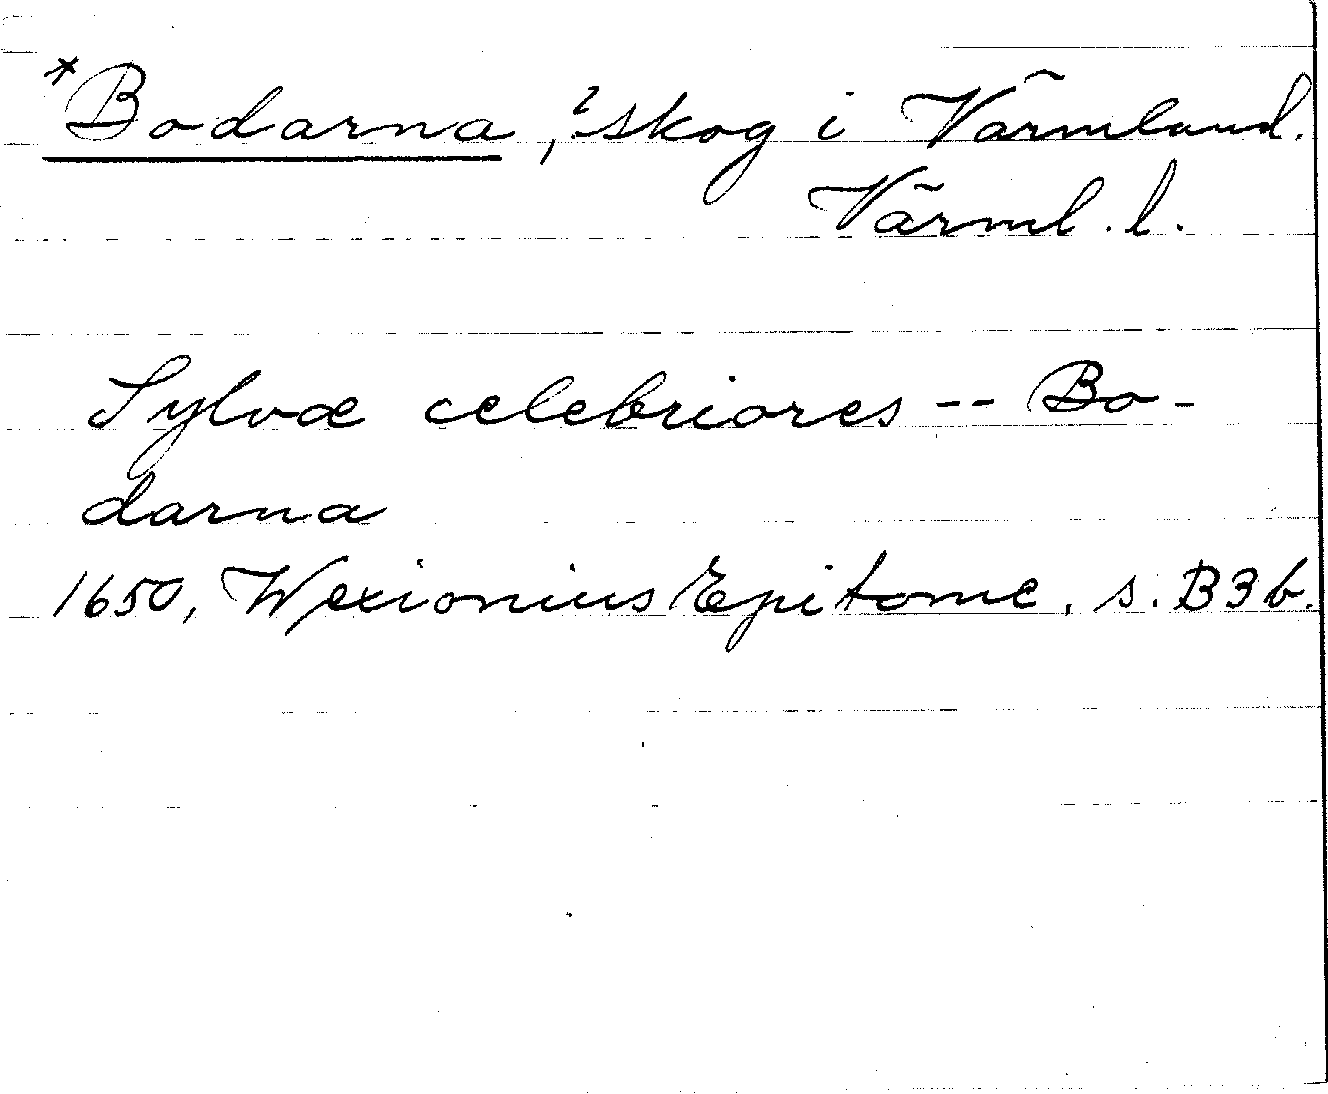 *Bodarna, ?skog i Värmland.
Värml. l.
Sylvæ celebriores -- Bo-
darna
1650, Wexionius Epitome. s. B3b.